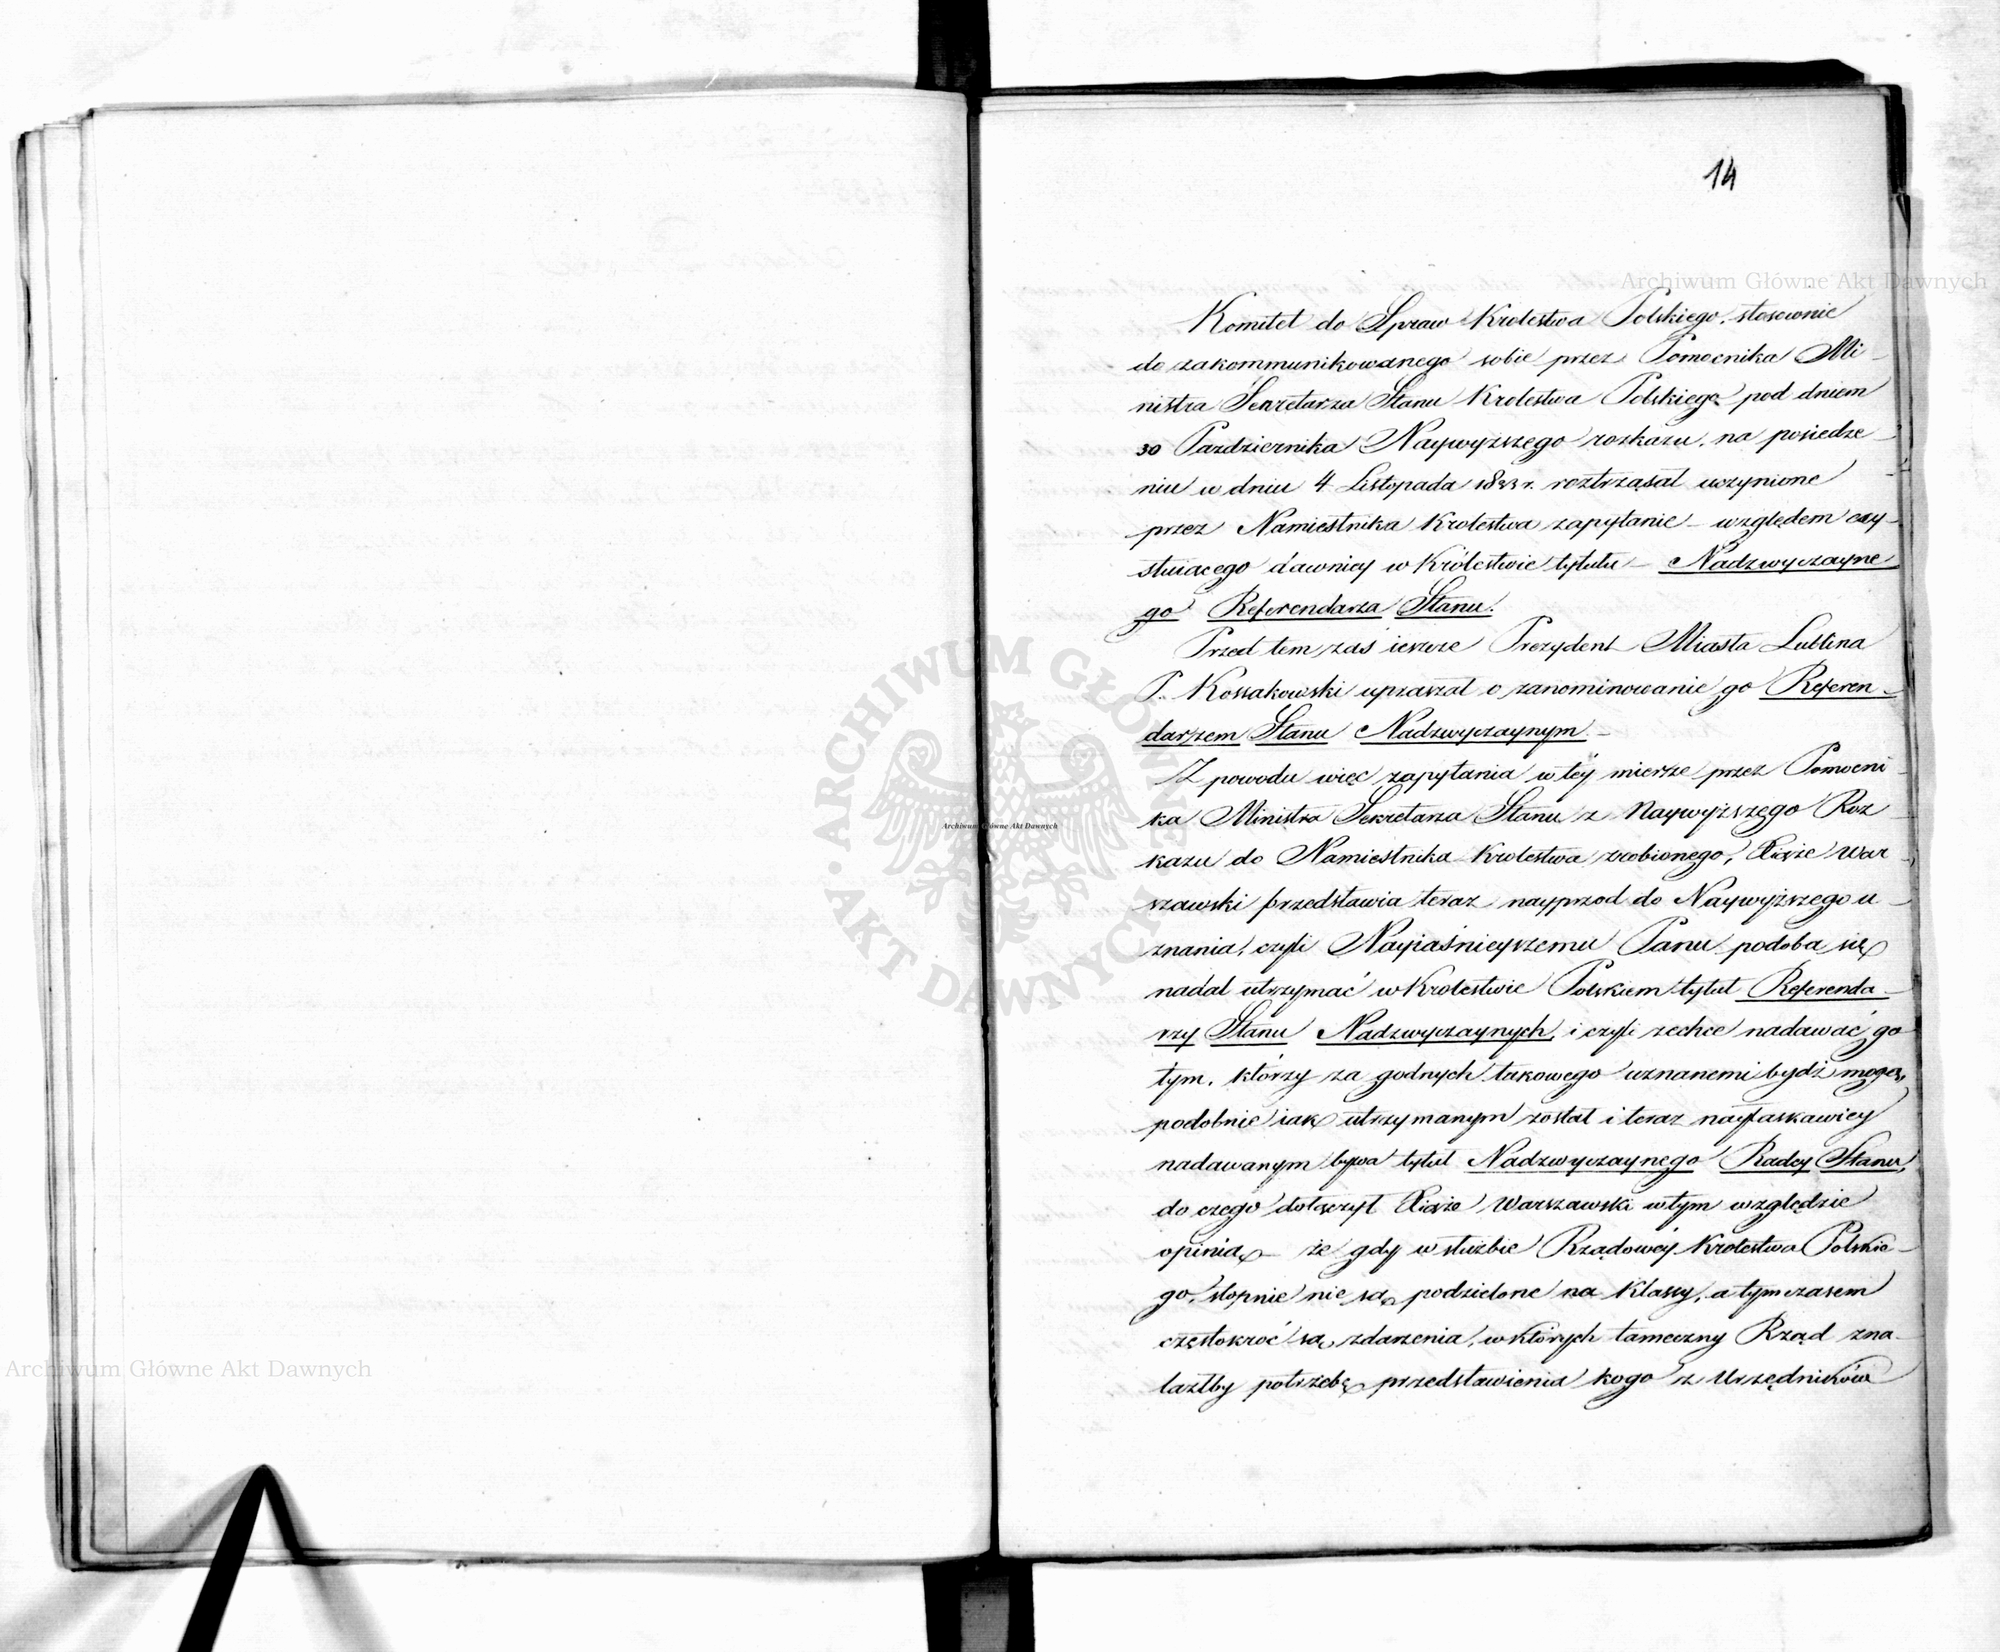 14
Archiwum Główne Akt Dawnych
Komitet do Spraw Krolestwa Polskiego, stosownie
do zakommunikowanego sobie przez Pomocnika Mi-
nistra Sekretarza Stanu Krolestwa Polskiego pod dniem
30 Pazdziernika Naywyzszego rozkazu, na posiedze-
niu w dniu 4 Listopada 1833 r. roztrząsał uczynione
przez Namiestnika Krolestwa zapytanie - względem exy-
stuiącego dawniey w Królestwie tytułu - Nadzwyczayne
go Referendarza Stanu.
Przed tem zaś ieszcze Prezydent Miasta Lublina
P. Kossakowski upraszał o zanominowanie go Referen-
darzem Stanu Nadzwyczaynym. -
Z powodu więc zapytania w téy mierze przez Pomocni-
ka Ministra Sekretarza Stanu z Naywyższego Roz-
kazu do Namiestnika Krolestwa zrobionego, Xiąże War-
szawski przedstawia teraz nayprzod do Naywyższego u-
znania, czyli Nayiaśnieyszemu Panu podoba się
nadal utrzymać w Krolestwie Polskiem tytuł Referenda-
rzy Stanu Nadzwyczaynych, i czyli zechce nadawać go
tym, którzy za godnych takowego uznanemi bydź mogą,
podobnie iak utrzymanym został i teraz nayłaskawiey
nadawanym bywa tytuł Nadzwyczaynego Radcy Stanu,
do czego dołączył Xiąże Warszawski w tym względzie
opinią - że gdy w służbie Rządowéy Krolestwa Polskie-
go, stopnie nie są podzielone na Klassy, a tymczasem
częstokroć są zdarzenia, w których tameczny Rząd zna-
lazłby potrzebę przedstawienia kogo z Urzędników
ARCHIWUM GŁÓWNE AKT DAWNYCH
Archiwum Główne Akt Dawnych
Archiwum Główne Akt Dawnych